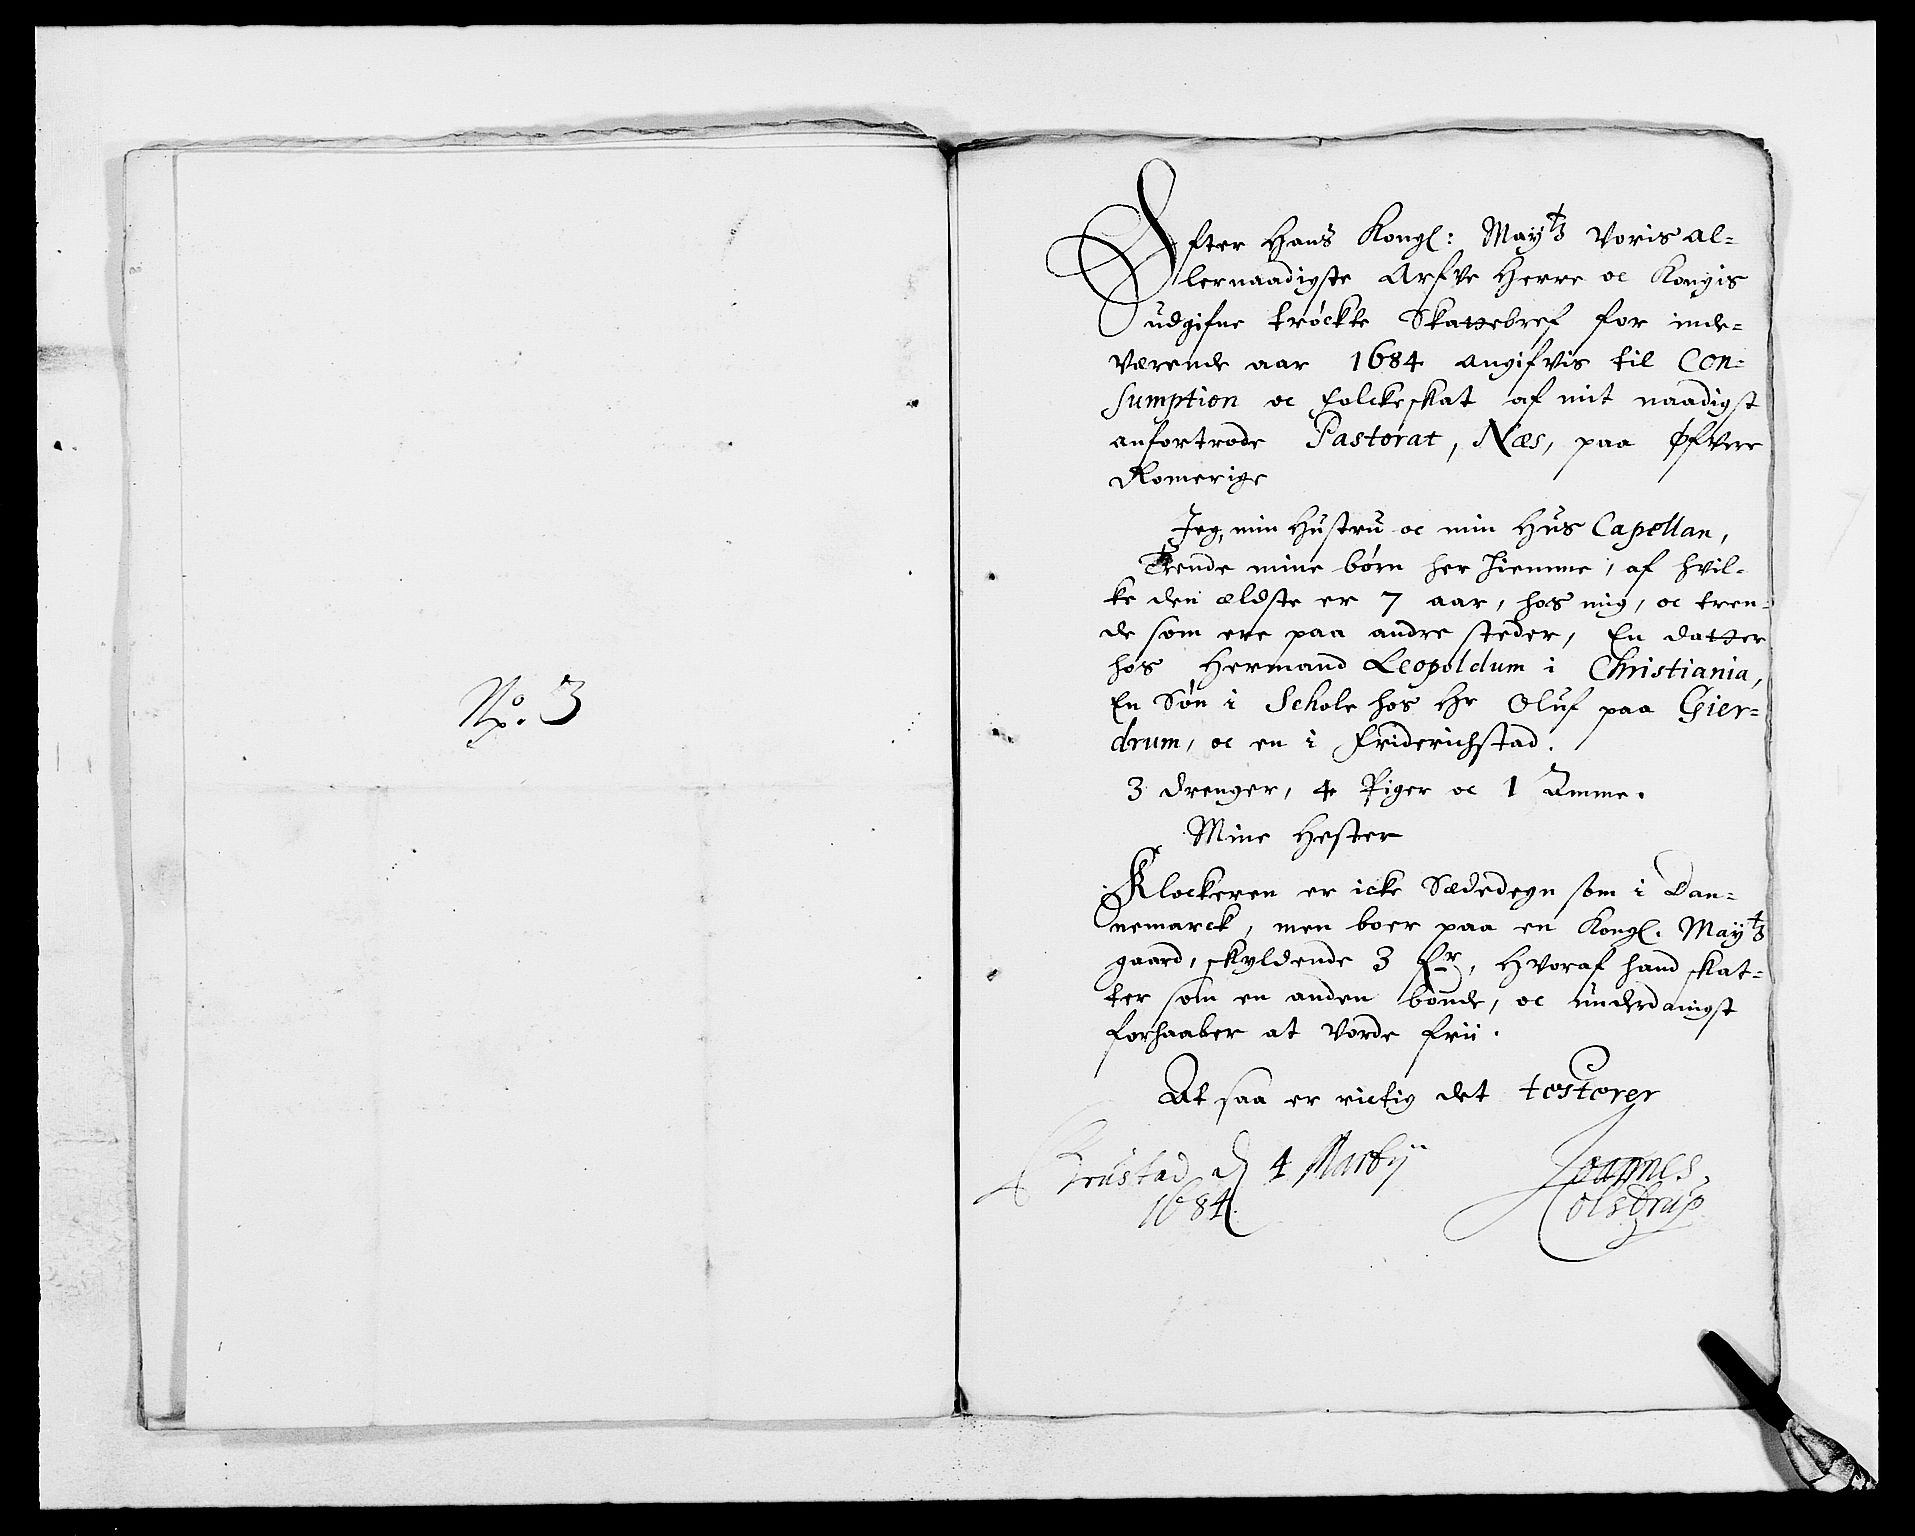 No. 3
Efter Hans Kongl: Mayts Voris al-
lernaadigste Arfve Herre oc Kongis
udgifne tröckte Skattebref for inde-
værende aar 1684 angifvis til Con-
sumption oc folckeskat af mit naadigst
anfortrode Pastorat, Næs, paa Øfvre
Romerige
Jeg, min Hustru oc min Hus Capellan,
Trende mine börn her hiemme, af hvil-
ke den ældste er 7 aar, hos mig, oc tren-
de som ere paa andre steder, En datter
hos Hermand Leopoldum i Christiania,
En Sön i Schole hos Hr Oluf paa Gier-
drum, oc en i Friderichstad.
3 drenger, 4 Piger oc 1 Amme.
Mine Hester
Klockeren er icke Sædedegn som i Dan-
nemarck, men boer paa en Kongl. Mayts
gaard, skyldende 3 fr, Hvoraf hand skat-
ter som en anden bonde, oc underdanigst
forhaaber at vorde frii.
At saa er rictig det testerer
d 4 Martij
1684.
Joannes
Colstrup